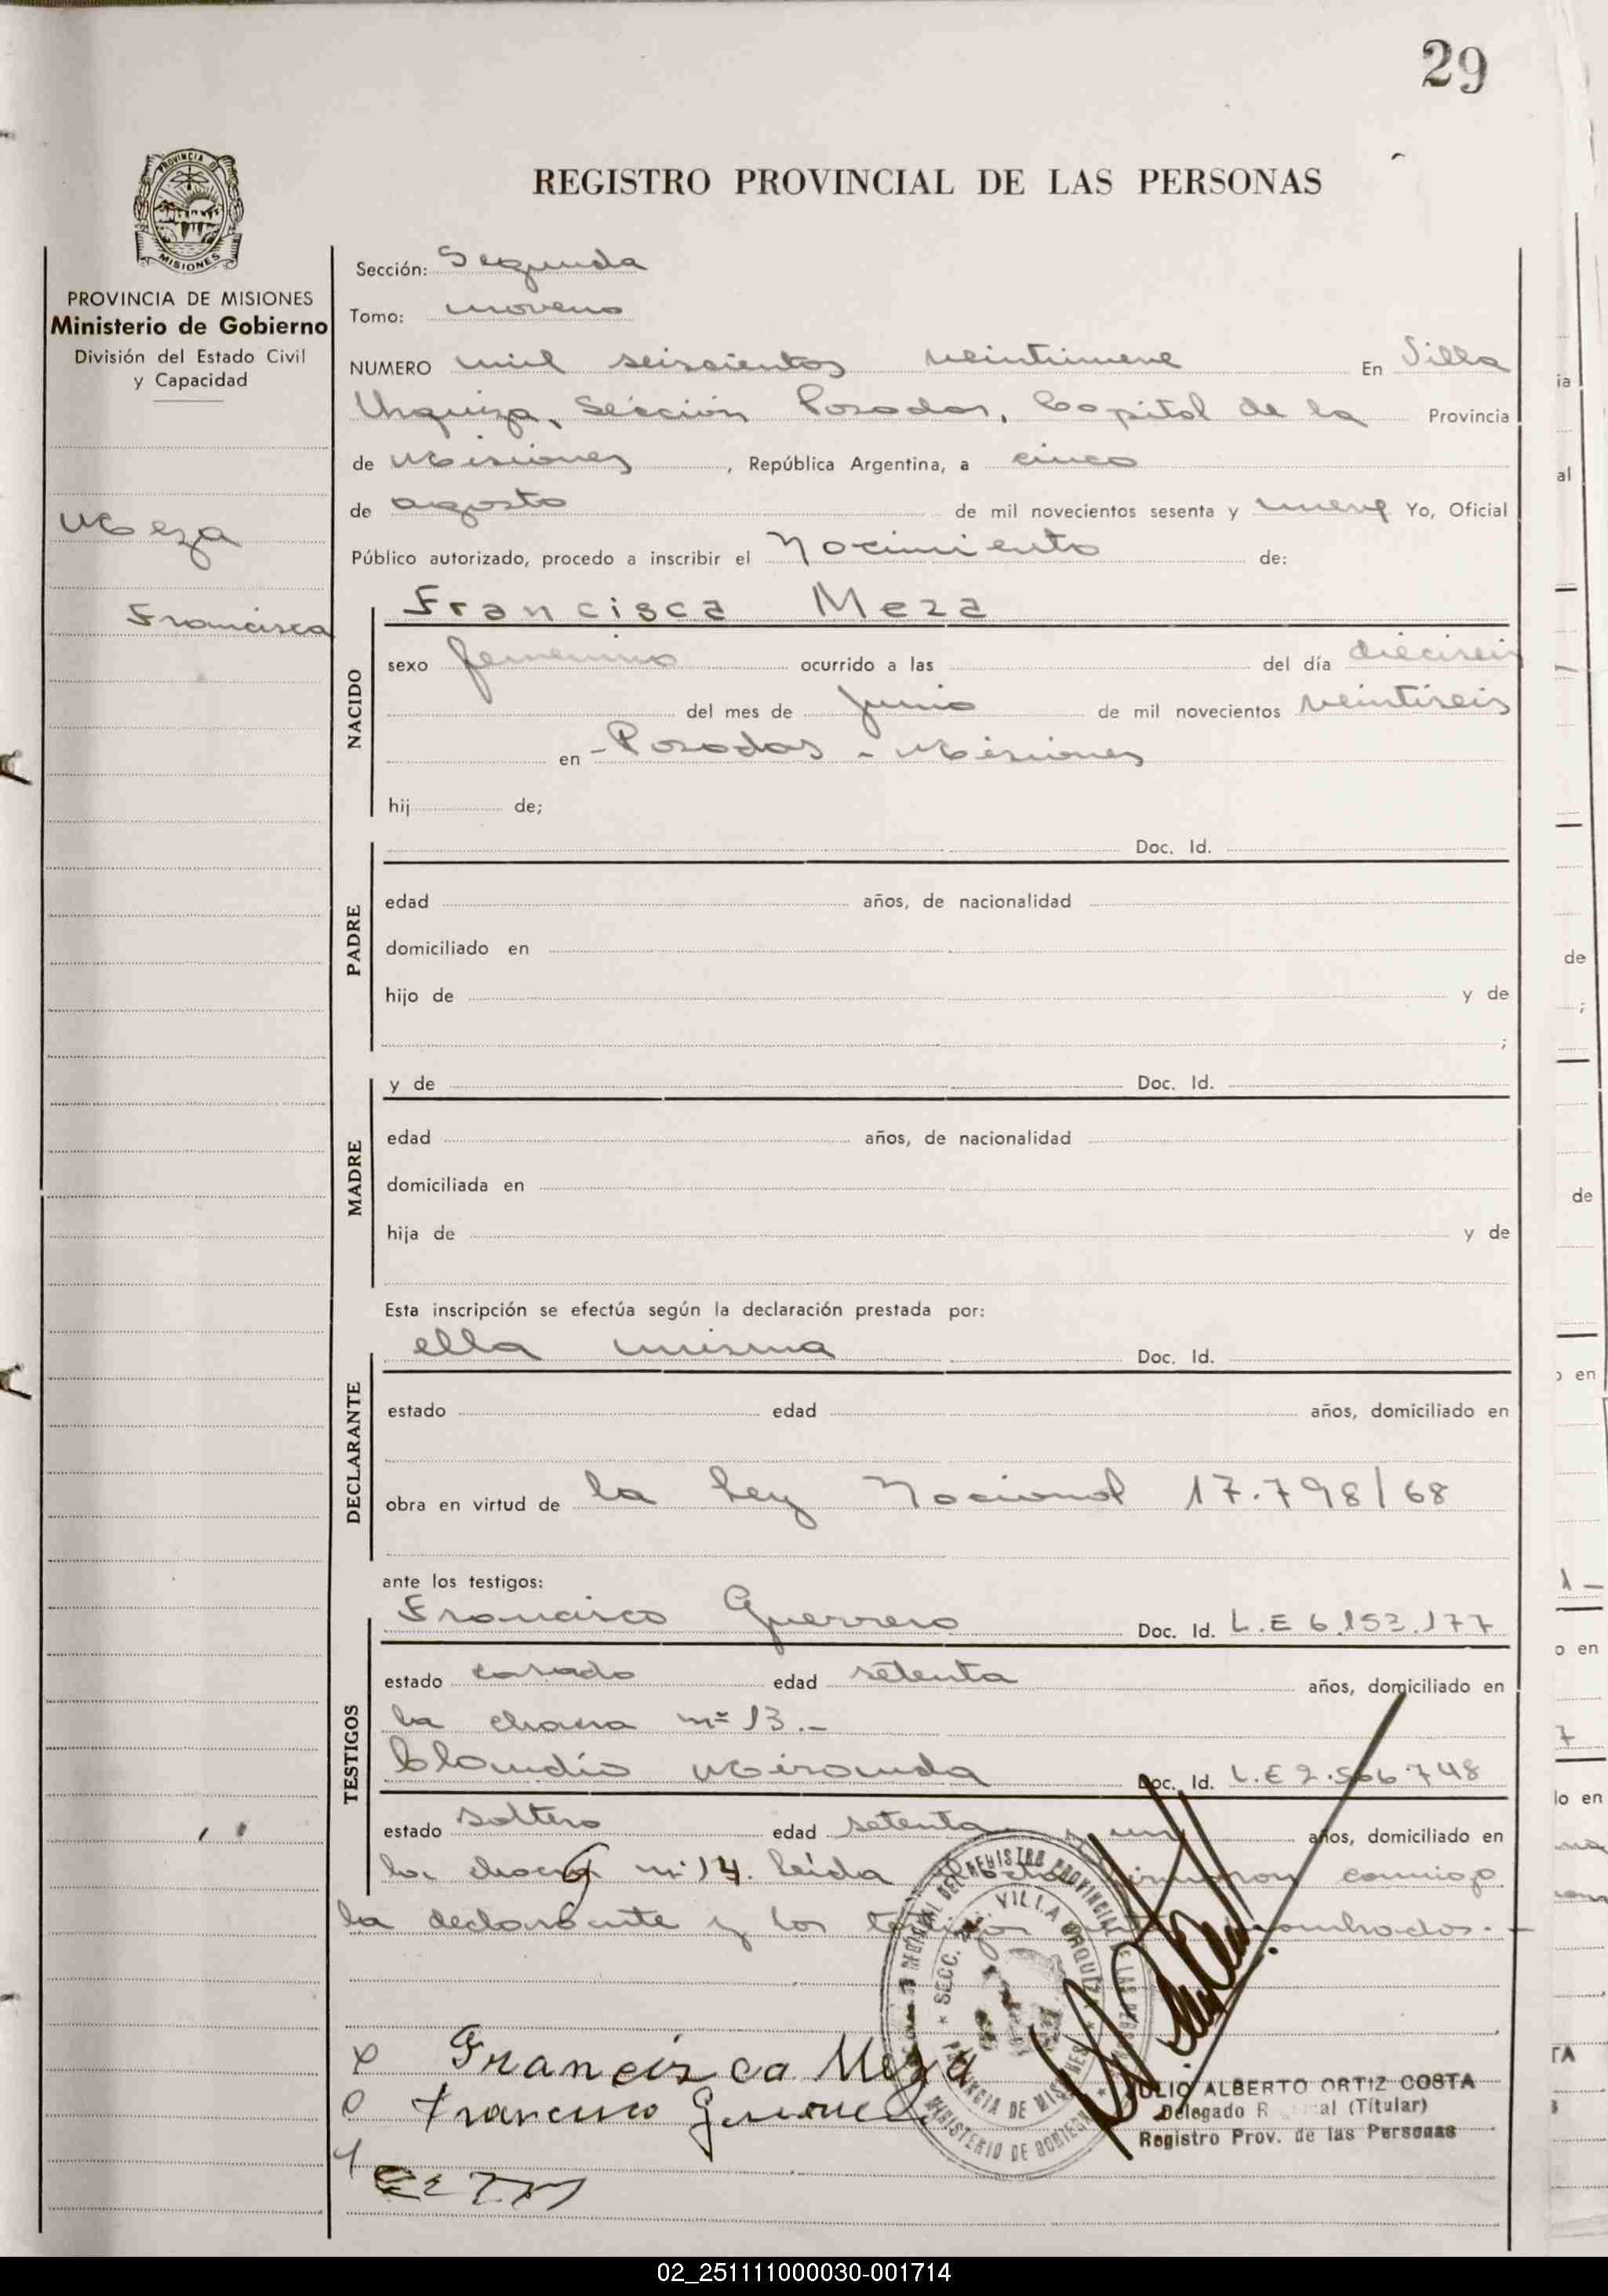 29
REGISTRO PROVINCIAL DE LAS PERSONAS
PROVINCIA DE MISIONES
Ministerio de Gobierno
División del Estado Civil
y Capacidad
Meza
Francisca
Sección: Segunda
Tomo: noveno
NUMERO mil seiscientos veintinueve En Villa
Urquiza, Sección Posadas, Capital de la Provincia
de Misiones, República Argentina, a cinco
de agosto de mil novecientos sesenta y nueve Yo, Oficial
Público autorizado, procedo a inscribir el Nacimiento de:
Francisca Meza
NACIDO
sexo femenino ocurrido a las del día dieciseis
del mes de junio de mil novecientos veintiseis
en - Posadas - Misiones
hij de;
PADRE
Doc. Id.
edad años, de nacionalidad
domiciliado en
hijo de y de
;
MADRE
y de Doc. Id.
edad años, de nacionalidad
domiciliada en
hija de y de
Esta inscripción se efectúa según la declaración prestada por:
DECLARANTE
ella misma Doc. Id.
estado edad años, domiciliado en
obra en virtud de la Ley Nacional 17.798/68
ante los testigos:
TESTIGOS
Francisco Guerrero Doc. Id. L.E 6.153.177
estado casado edad setenta años, domiciliado en
la chacra nº 13.-
Claudio Miranda Doc. Id. L.E 2.566.748
estado soltero edad setenta y un años, domiciliado en
la chacra nº 14. Leída firmaron conmigo
la declarante y los testigos
Francisca Meza
Francisco Guerrero
JULIO ALBERTO ORTIZ COSTA
Delegado (Titular)
Registro Prov. de las Personas
SECC. VILLA URQUIZA
PROVINCIA DE MISIONES
MINISTERIO DE GOBIERNO
02_251111000030-001714